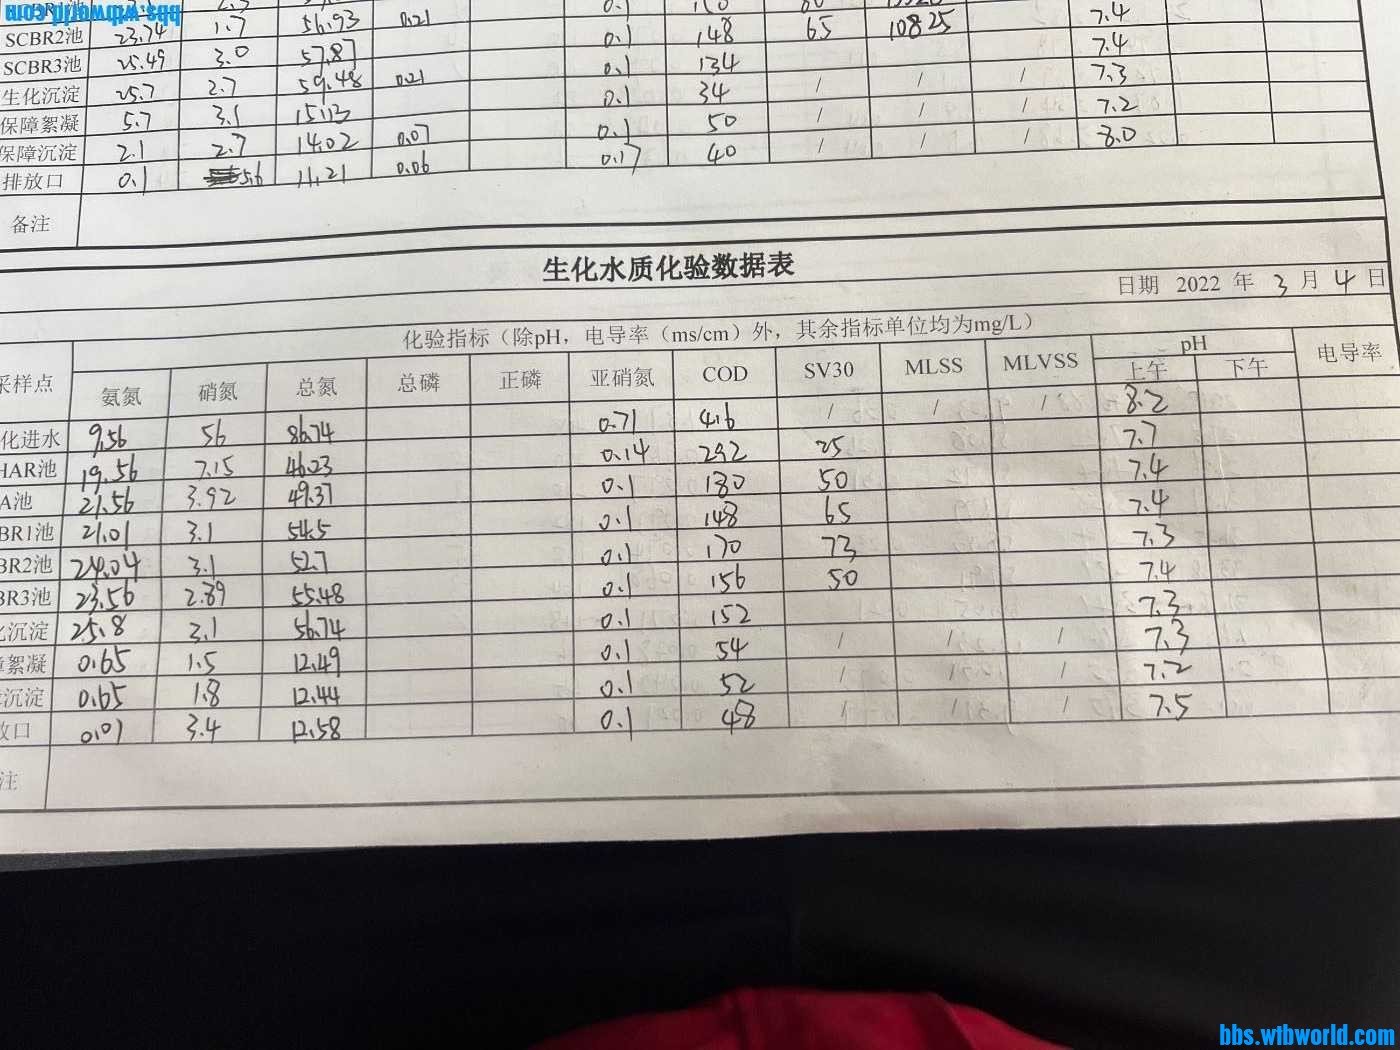 bbs.wibworld.com
SCBR2池 23.74 1.7 56.93 0.21 0.1 148 65 10825 7.4
SCBR3池 25.49 3.0 57.87 0.1 134 7.4
生化沉淀 25.7 2.7 59.48 0.21 0.1 34 / / / 7.3
保障絮凝 5.7 3.1 15.13 0.1 50 / / / 7.2
保障沉淀 2.1 2.7 14.02 0.07 0.17 40 / / / 8.0
排放口 0.1 5.6 11.21 0.06
备注
生化水质化验数据表
日期 2022 年 3 月 4 日
采样点 化验指标（除pH，电导率（ms/cm）外，其余指标单位均为mg/L）
氨氮 硝氮 总氮 总磷 正磷 亚硝氮 COD SV30 MLSS MLVSS pH 上午 下午 电导率
化进水 9.56 56 86.74 0.71 416 / / / 8.2
HAR池 19.56 7.15 46.23 0.14 292 25 7.7
A池 21.56 3.92 49.37 0.1 180 50 7.4
BR1池 21.01 3.1 54.5 0.1 148 65 7.4
BR2池 24.04 3.1 52.7 0.1 170 73 7.3
BR3池 23.56 2.89 55.48 0.1 156 50 7.4
沉淀 25.8 3.1 56.74 0.1 152 7.3
絮凝 0.65 1.5 12.49 0.1 54 / / / 7.3
沉淀 0.65 1.8 12.44 0.1 52 / / / 7.2
放口 0.01 3.4 12.58 0.1 48 / / / 7.5
注
bbs.wibworld.com